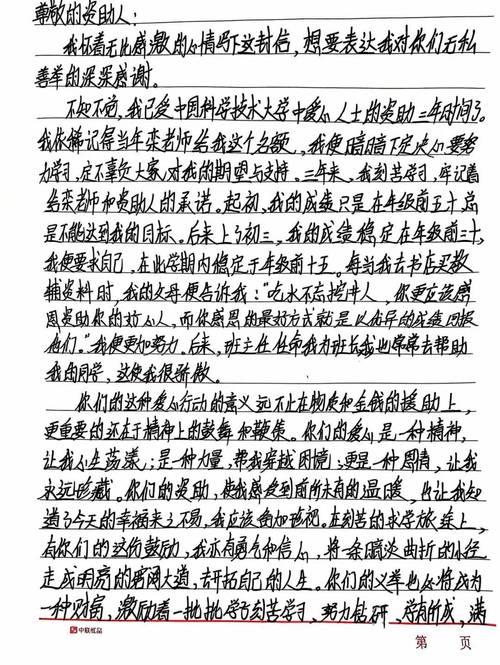 尊敬的资助人：
我怀着无比感激的心情写下这封信，想要表达我对你们无私
善举的深深感谢。
不知不觉，我已受中国科学技术大学中爱心人士的资助三年时间了。
我依稀记得当年栾老师给我这个名额，我便暗暗下定决心要努
力学习，定不辜负大家对我的期望与支持。三年来，我刻苦学习，牢记着
给栾老师和资助人的承诺。起初，我的成绩只是在年级前五十，总
是不能达到我的目标。后来上了初三，我的成绩稳定在年级前三十，
我便要求自己，在此学期内稳定于年级前十五。每当我去书店买教
辅资料时，我的父母便告诉我："吃水不忘挖井人，你更应该感
恩资助你的好心人，而你感恩的最好方式就是以优异的成绩回报
他们。"我便更加努力。后来，班主任任命我为班长，我也常常去帮助
我的同学，这使我很骄傲。
你们的这种爱心行动的意义远不止在物质和金钱的援助上，
更重要的还在于精神上的鼓舞和鞭策。你们的爱心是一种精神，
让我心生荡漾；是一种力量，带我穿越困境；更是一种恩情，让我
永远珍藏。你们的资助，使我感受到前所未有的温暖，也让我知
道了今天的幸福来之不易，我应该倍加珍视。在刻苦的求学旅途上，
有你们的这份鼓励，我亦有勇气和信心，将一条暗淡曲折的小径
走成明亮的宽阔大道，去开拓自己的人生。你们的义举也必将成为
一种财富，激励着一批批学子刻苦学习，努力钻研，学有所成，满
中联纸品
第 页